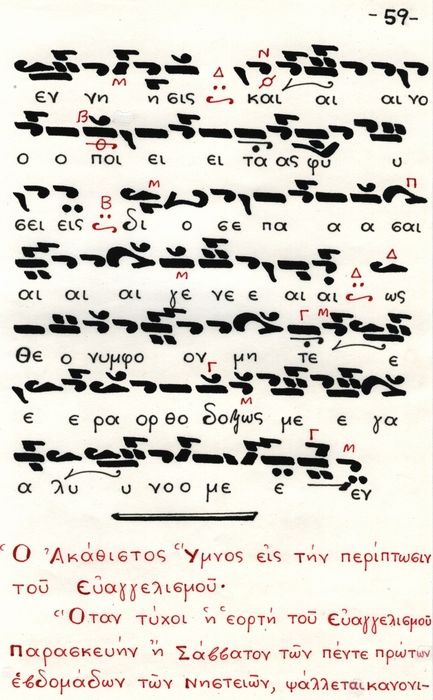 -59-
εν νη η σις και αι αι νο
ο ο ποι ει ει τα ας φυ υ
σει εις δι ο σε πα α α σαι
αι αι αι γε νε ε αι αι ως
Θε ο νυμφο ον μη τε ε
ε ε ρα ορ θο δο ξως με ε γα
α λυ υ νο ο με ε εν
Ὁ Ἀκάθιστος Ὕμνος εἰς τήν περίπτωσιν
τοῦ Εὐαγγελισμοῦ.
Ὅταν τύχοι ἡ ἑορτή τοῦ Εὐαγγελισμοῦ
Παρασκευήν ἤ Σάββατον τῶν πέντε πρώτων
ἑβδομάδων τῶν Νηστειῶν, ψάλλεται κανονι-